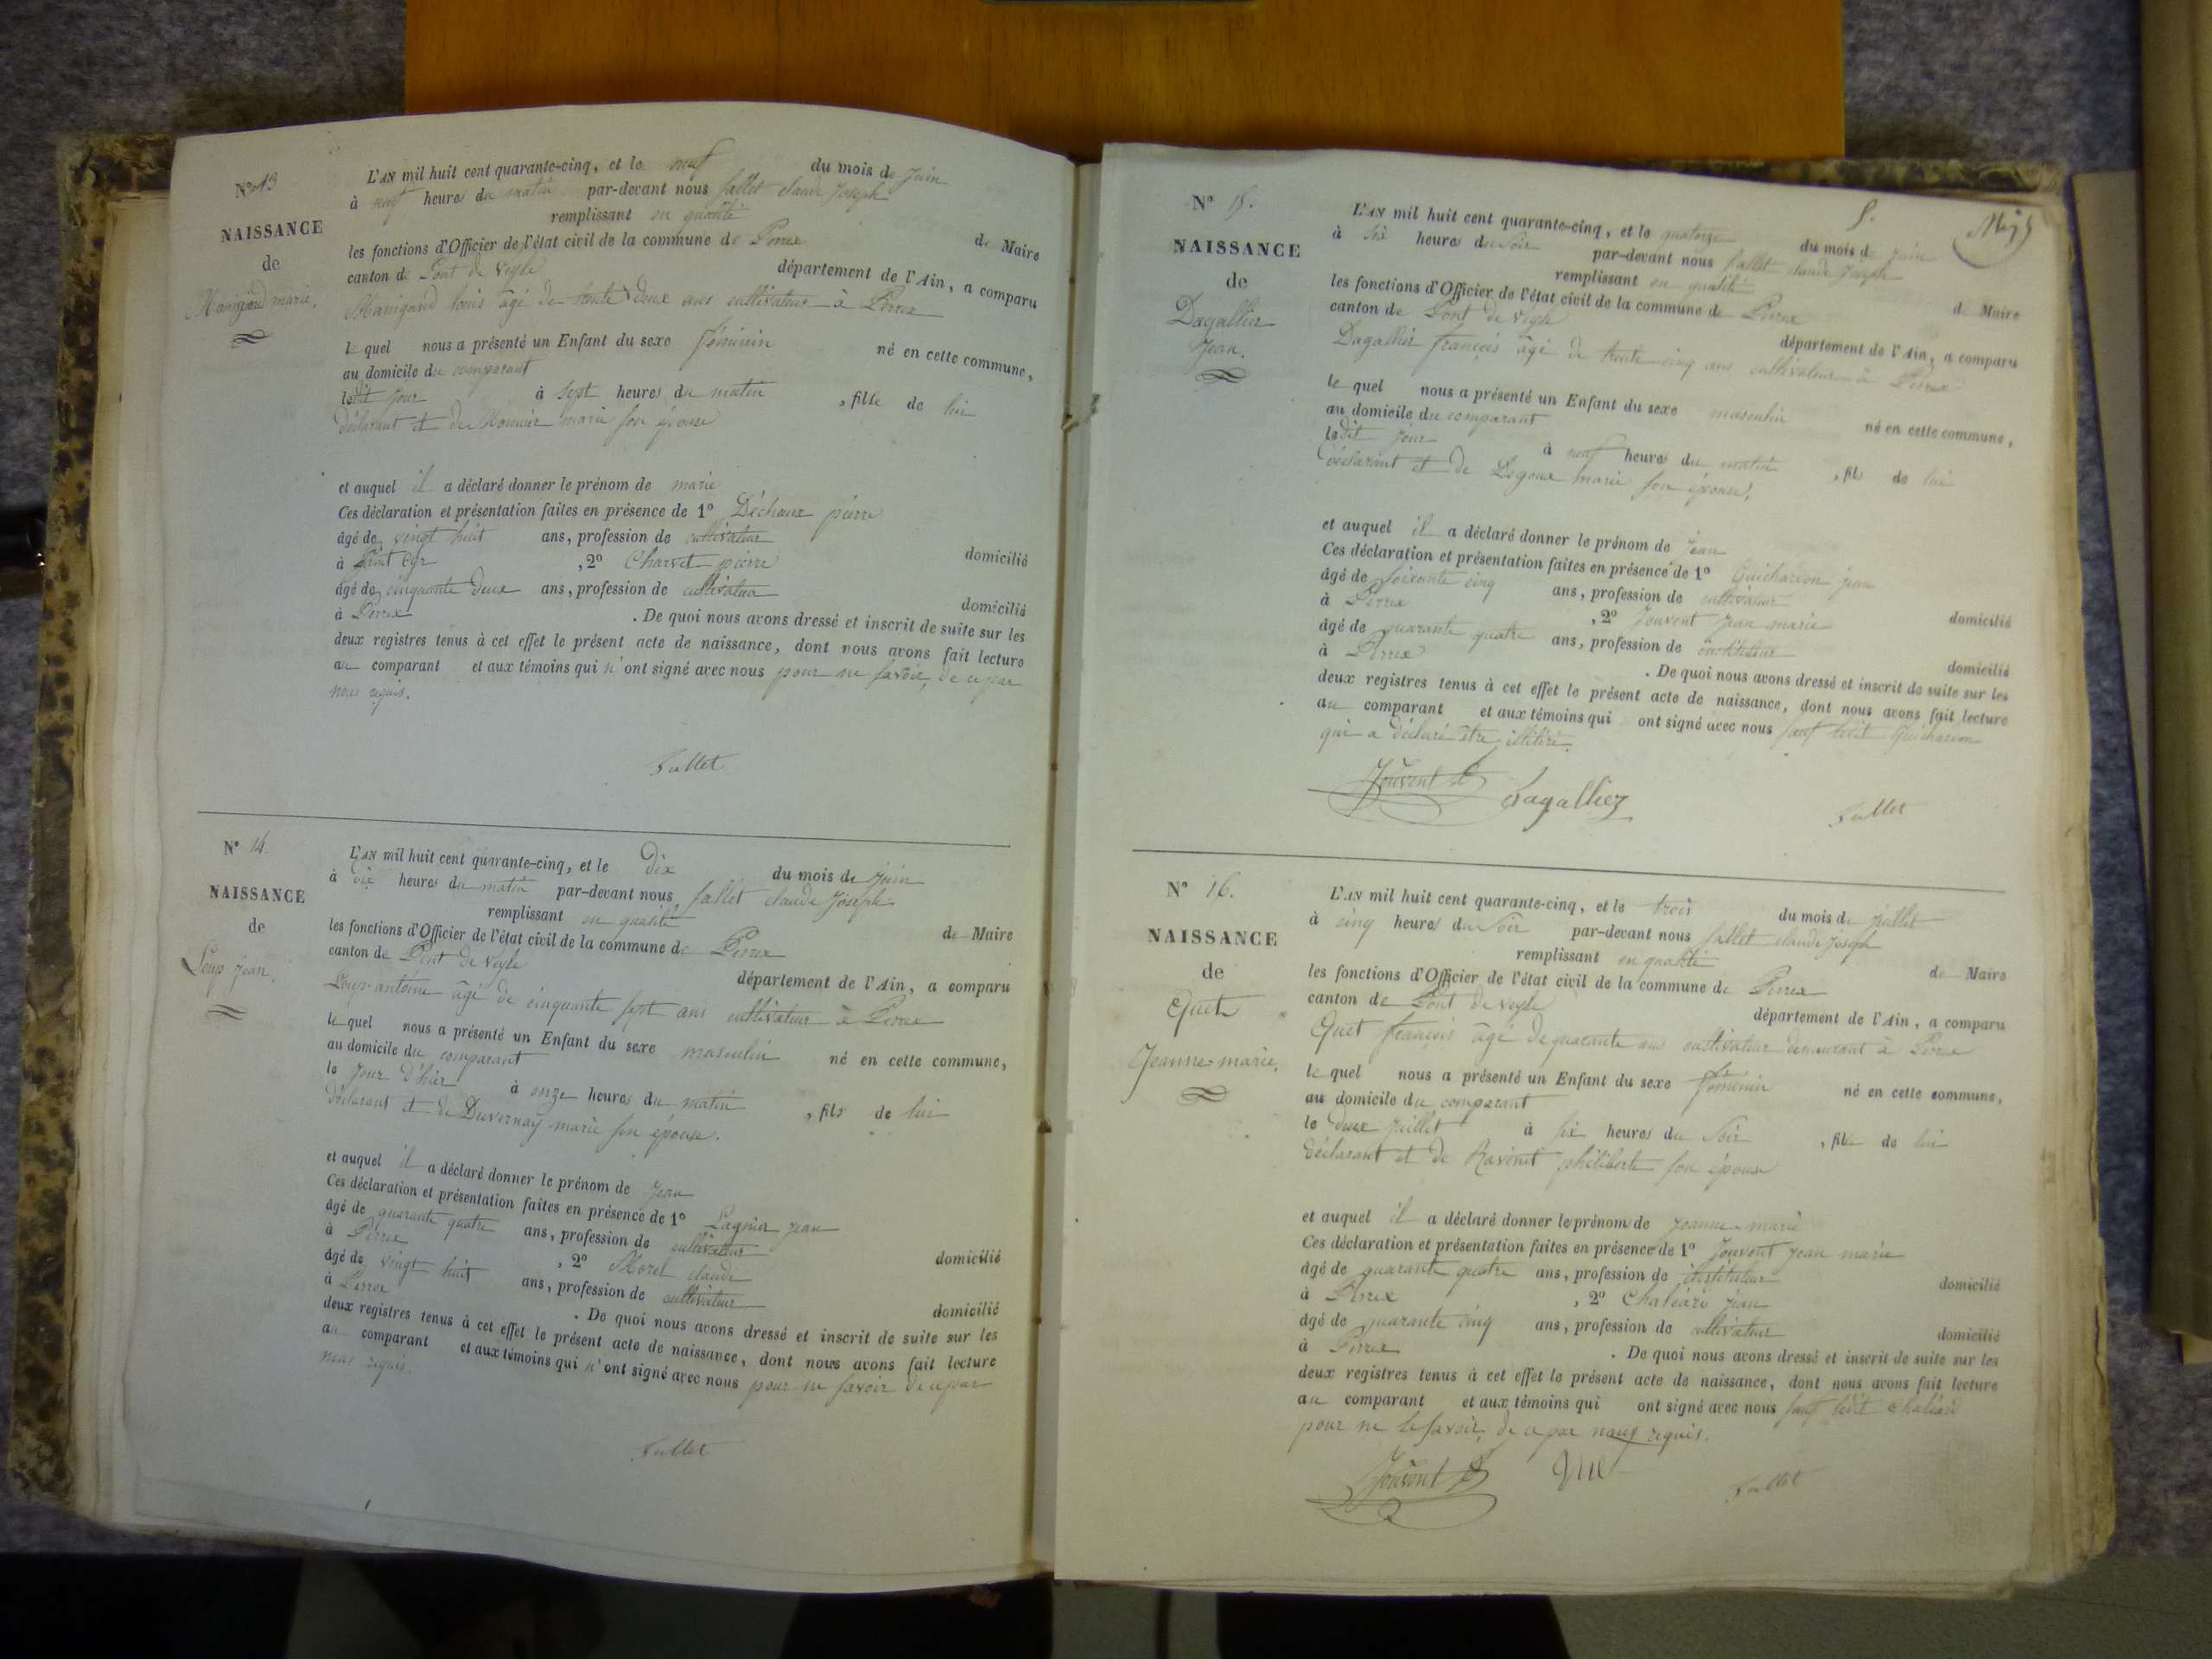 N° 13
NAISSANCE
de
Manigand marie.
L'AN mil huit cent quarante-cinq, et le neuf du mois de juin
à neuf heures du matin par-devant nous fallet claude Joseph
remplissant en qualité de Maire
les fonctions d'Officier de l'état civil de la commune de Perrex
canton de Pont de Veyle département de l'Ain, a comparu
Manigand louis âgé de trente deux ans cultivateur à Perrex
le quel nous a présenté un Enfant du sexe féminin né en cette commune,
au domicile du comparant
ledit jour à sept heures du matin, fille de lui
déclarant et de marie son épouse
et auquel il a déclaré donner le prénom de marie
Ces déclaration et présentation faites en présence de 1° Déchaux pierre
âgé de vingt huit ans, profession de cultivateur domicilié
à Saint Cyr, 2° Charvet pierre
âgé de cinquante deux ans, profession de cultivateur domicilié
à Perrex. De quoi nous avons dressé et inscrit de suite sur les
deux registres tenus à cet effet le présent acte de naissance, dont nous avons fait lecture
au comparant et aux témoins qui n'ont signé avec nous pour ne savoir, de ce par
nous requis.
Fallet
N° 14.
NAISSANCE
de
Loup Jean.
L'AN mil huit cent quarante-cinq, et le dix du mois de juin
à dix heures du matin par-devant nous fallet claude Joseph
remplissant en qualité de Maire
les fonctions d'Officier de l'état civil de la commune de Perrex
canton de Pont de Veyle département de l'Ain, a comparu
Loup antoine âgé de cinquante sept ans cultivateur à Perrex
le quel nous a présenté un Enfant du sexe masculin né en cette commune,
au domicile du comparant
le jour d'hier à onze heures du matin, fils de lui
déclarant et de Duvernay marie son épouse.
et auquel il a déclaré donner le prénom de Jean
Ces déclaration et présentation faites en présence de 1° Lagnier Jean
âgé de quarante quatre ans, profession de cultivateur domicilié
à Perrex, 2° Morel claude
âgé de vingt huit ans, profession de cultivateur domicilié
à Perrex. De quoi nous avons dressé et inscrit de suite sur les
deux registres tenus à cet effet le présent acte de naissance, dont nous avons fait lecture
au comparant et aux témoins qui n'ont signé avec nous pour ne savoir de ce par
nous requis.
Fallet
5.
N° 15.
NAISSANCE
de
Dagallier
Jean.
L'AN mil huit cent quarante-cinq, et le quatorze du mois de juin
à six heures du soir par-devant nous fallet claude Joseph
remplissant en qualité de Maire
les fonctions d'Officier de l'état civil de la commune de Perrex
canton de Pont de Veyle département de l'Ain, a comparu
Dagallier françois âgé de trente cinq ans cultivateur à Perrex
le quel nous a présenté un Enfant du sexe masculin né en cette commune,
au domicile du comparant
ledit jour à neuf heures du matin, fils de lui
déclarant et de Digoux marie son épouse.
et auquel il a déclaré donner le prénom de Jean
Ces déclaration et présentation faites en présence de 1° Guichardon jean
âgé de soixante cinq ans, profession de cultivateur domicilié
à Perrex, 2° Jouvent Jean marie
âgé de quarante quatre ans, profession de instituteur domicilié
à Perrex. De quoi nous avons dressé et inscrit de suite sur les
deux registres tenus à cet effet le présent acte de naissance, dont nous avons fait lecture
au comparant et aux témoins qui ont signé avec nous sauf ledit Guichardon
qui a déclaré être illitéré.
Jouvent Dagallier Fallet
N° 16.
NAISSANCE
de
Quet
Jeanne-marie.
L'AN mil huit cent quarante-cinq, et le trois du mois de juillet
à cinq heures du soir par-devant nous fallet claude Joseph
remplissant en qualité de Maire
les fonctions d'Officier de l'état civil de la commune de Perrex
canton de Pont de Veyle département de l'Ain, a comparu
Quet françois âgé de quarante ans cultivateur demeurant à Perrex
le quel nous a présenté un Enfant du sexe féminin né en cette commune,
au domicile du comparant
le deux juillet à six heures du soir, fille de lui
déclarant et de Ravinet philiberte son épouse
et auquel il a déclaré donner le prénom de Jeanne-marie
Ces déclaration et présentation faites en présence de 1° Jouvent Jean marie
âgé de quarante quatre ans, profession de instituteur domicilié
à Perrex, 2° Chaléard Jean
âgé de quarante cinq ans, profession de cultivateur domicilié
à Perrex. De quoi nous avons dressé et inscrit de suite sur les
deux registres tenus à cet effet le présent acte de naissance, dont nous avons fait lecture
au comparant et aux témoins qui ont signé avec nous sauf ledit Chaléard
pour ne le savoir, de ce par nous requis.
Jouvent Quet Fallet